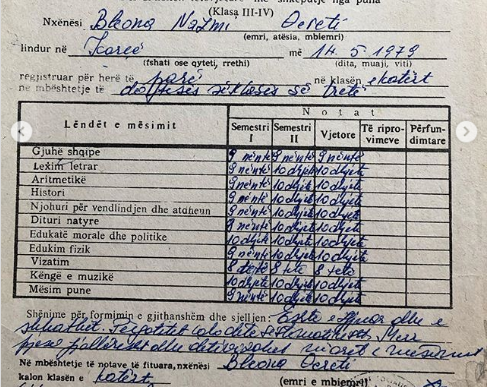 (Klasa III-IV)
Nxënësi Bleona Nazmi Qereti
(emri, atësia, mbiemri)
lindur në Korcë më 14. 5. 1979
(fshati ose qyteti, rrethi) (dita, muaji, viti)
regjistruar për herë të parë në klasën e katërt
në mbështetje të dëftesës së klasës së tretë
Lëndët e mësimit Notat
Semestri I Semestri II Vjetore Të riprovimeve Përfundimtare
Gjuhë shqipe 9 nëntë 9 nëntë 9 nëntë
Lexim letrar 9 nëntë 10 dhjetë 10 dhjetë
Aritmetikë 9 nëntë 10 dhjetë 10 dhjetë
Histori 9 nëntë 10 dhjetë 10 dhjetë
Njohuri për vendlindjen dhe atdheun 9 nëntë 10 dhjetë 10 dhjetë
Dituri natyre 9 nëntë 10 dhjetë 10 dhjetë
Edukatë morale dhe politike 10 dhjetë 10 dhjetë 10 dhjetë
Edukim fizik 9 nëntë 10 dhjetë 10 dhjetë
Vizatim 8 tetë 8 tetë 8 tetë
Këngë e muzikë 10 dhjetë 10 dhjetë 10 dhjetë
Mësim pune 9 nëntë 10 dhjetë 10 dhjetë
Shënime për formimin e gjithanshëm dhe sjelljen: Është e dhe e
Merr
pjesë dhe
Në mbështetje të notave të fituara, nxënësi Bleona Qereti
kalon klasën e katërt (emri e mbiemri)